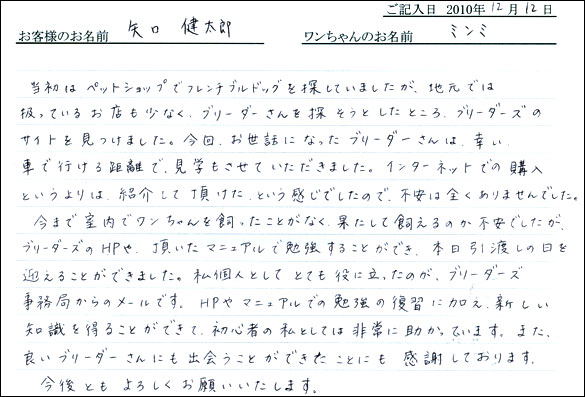 ご記入日 2010年12月12日
お客様のお名前 矢口 健太郎 ワンちゃんのお名前 ミンミ
当初はペットショップでフレンチブルドッグを探していましたが、地元では
扱っているお店も少なく、ブリーダーさんを探そうとしたところ、ブリーダーズの
サイトを見つけました。今回、お世話になったブリーダーさんは、幸い、
車で行ける距離で、見学もさせていただきました。インターネットでの購入
というよりは、紹介して頂けた、という感じでしたので、不安は全くありませんでした。
今まで室内でワンちゃんを飼ったことがなく、果たして飼えるのか不安でしたが、
ブリーダーズのHPや、頂いたマニュアルで勉強することができ、本日引渡しの日を
迎えることができました。私個人としてとても役に立ったのが、ブリーダーズ
事務局からのメールです。HPやマニュアルでの勉強の復習に加え、新しい
知識を得ることができて、初心者の私としては非常に助かっています。また、
良いブリーダーさんにも出会うことができたことにも感謝しております。
今後ともよろしくお願いいたします。